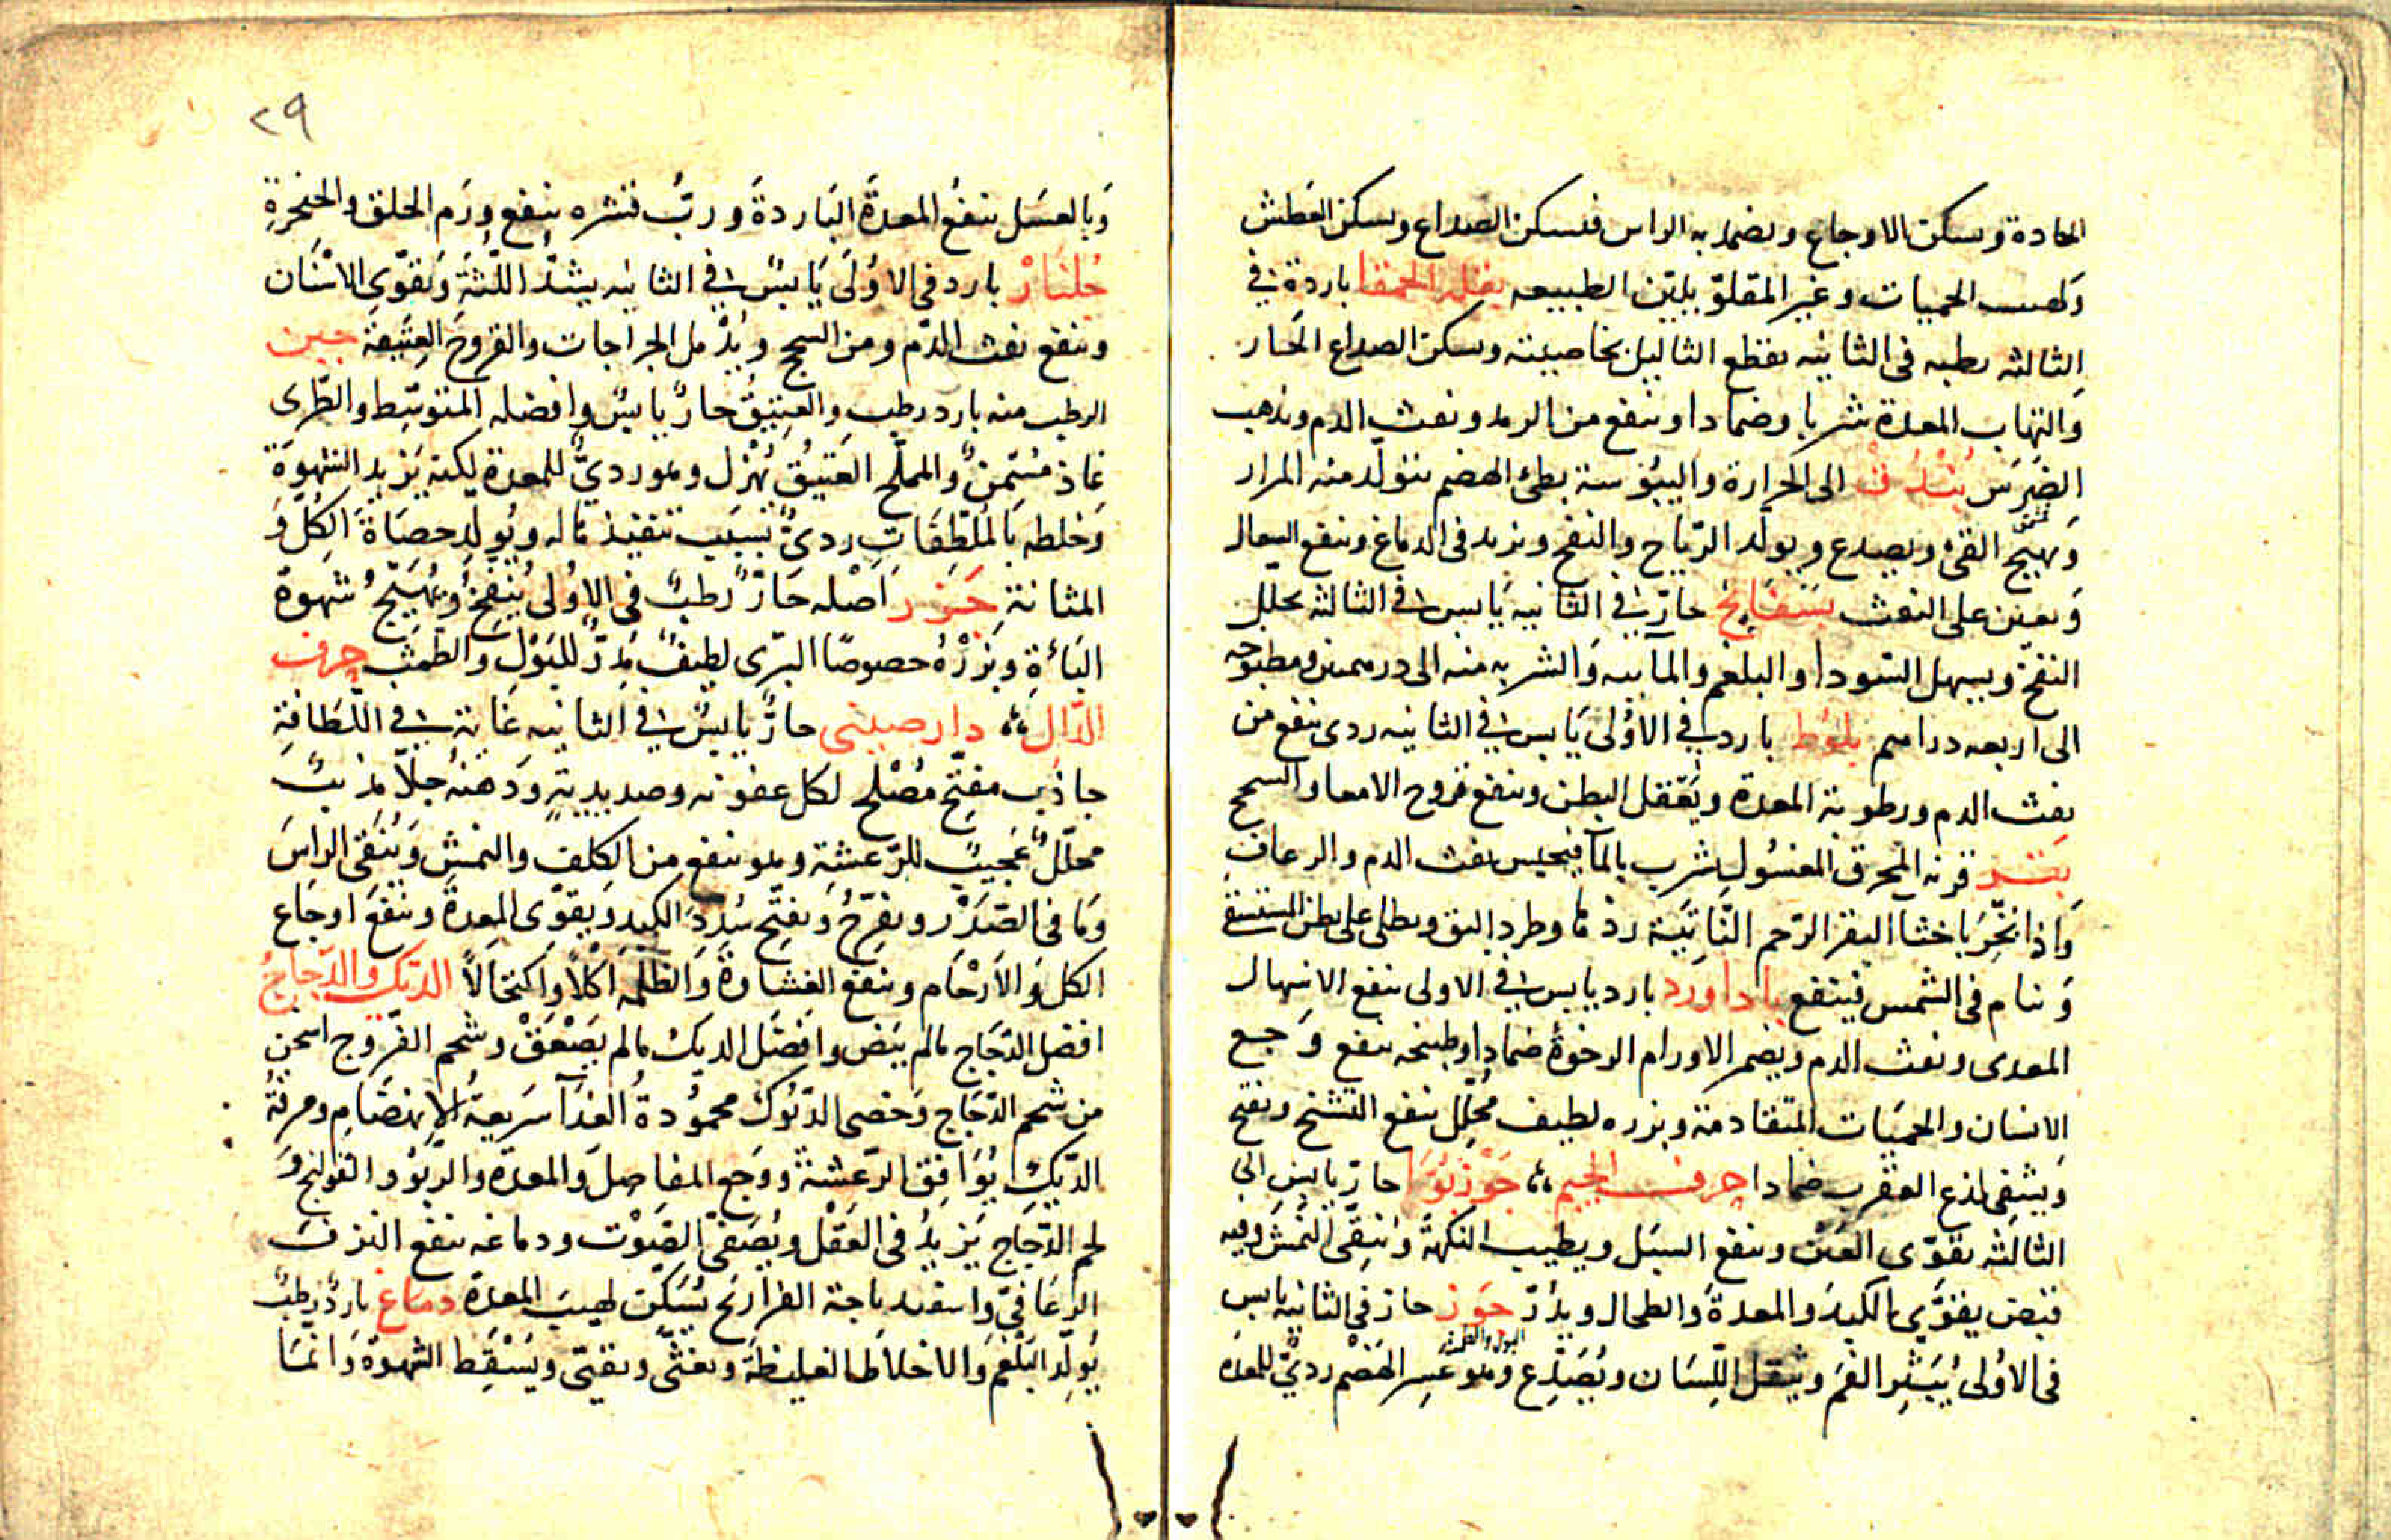 الحادة ويسكن الاوجاع ويضمد به الراس فيسكن الصداع ويسكن العطش
ولهيب الحميات وغير المقلو يلين الطبيعه بقلة الحمقا باردة في
الثالثه رطبه في الثانيه يقطع الثاليل بخاصيته ويسكن الصداع الحار
والتهاب المعدة شربا وضمادا وينفع من الرمد ونفث الدم ويذهب
الضرس بندق الى الحرارة واليبوسة بطئ الهضم يتولد منه المرار
ويهيج القئ ويصدع ويولد الرياح والنفخ ويزيد في الدماغ وينفع السعال
ويعين على النفث بسفايج حار في الثانيه يابس في الثالثه يحلل
النفخ ويسهل السودا والبلغم والمائيه والشربه منه الى درهمين ومطبوخه
الى اربعه دراهم بلوط بارد في الاولى يابس في الثانيه ردى ينفع من
نفث الدم ورطوبة المعدة ويعقل البطن وينفع قروح الامعا والسحج
بقر قرنه المحرق المغسول يشرب بالمآ فيحبس نفث الدم والرعاف
واذا بخر باخثا البقر الرحم الناتية ردها وطرد البق ويطلى على بطن المستسقي
وينام في الشمس فينتفع باداورد بارد يابس في الاولى ينفع الاسهال
المعدى ونفث الدم ويضمر الاورام الرخوة ضمادا وطبيخه ينفع وجع
الاسنان والحميات المتقادمة وبزره لطيف محلل ينفع التشنج ويفتح
ويشفى لذع العقرب ضمادا حرف الجيم جوزبوا حار يابس الى
الثالثه يقوى العين وينفع السبل ويطيب النكهة وينقى النمش وفيه
قبض يقوى الكبد والمعدة والطحال ويدر البول جوز حار في الثانيه يابس
في الاولى يبثر الفم ويثقل اللسان ويصدع وهو عسر الهضم ردئ للمعدة
٢٩
وبالعسل ينفع المعدة الباردة ورب قشره ينفع ورم الحلق والحنجرة
جلنار بارد في الاولى يابس في الثانيه يشد اللثة ويقوى الاسنان
وينفع نفث الدم ومن السحج ويدمل الجراحات والقروح العتيقة جبن
الرطب منه بارد رطب والعتيق حار يابس وافضله المتوسط والطرى
غاذ مسمن والمملح العتيق يهزل وهو ردي للمعدة لكنه يزيد الشهوة
وخلطه بالملطفات ردئ بسبب تنفيذها له ويولد حصاة الكلى و
المثانة جزر اصله حار رطب في الاولى ينفخ ويهيج شهوة
الباءة وبزره خصوصا البرى لطيف مدر للبول والطمث حرف
الدال دارصينى حار يابس في الثانيه غاية في اللطافة
جاذب مفتح مصلح لكل عفونه وصديدية ودهنه جلا مذيب
محلل عجيب للرعشة وهو ينفع من الكلف والنمش وينقى الراس
وما في الصدر ويفرح ويفتح سدد الكبد ويقوى المعدة وينفع اوجاع
الكلى والارحام وينفع الغشاوة والظلمه اكلا واكتحالا الديك والدجاج
افضل الدجاج مالم يبض وافضل الديك مالم يصعق وشحم الفروج اسخن
من شحم الدجاج وخصى الديوك محمودة الغذآ سريعة الانهضام ومرقة
الديك يوافق الرعشة ووجع المفاصل والمعدة والربو والقولنج و
لحم الدجاج يزيد في العقل ويصفى الصوت ودماغه ينفع النزف
الرعافي واسفيدباجة الفراريج يسكن لهيب المعدة دماغ بارد رطب
يولد البلغم والاخلاط الغليظة ويغثى ويقيئ ويسقط الشهوة وانما